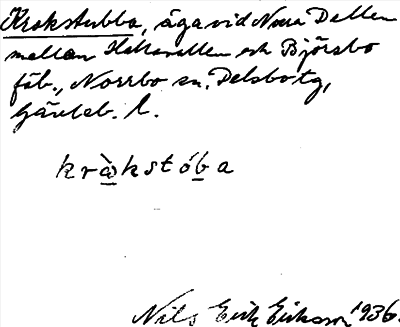 Krokstubba, äga vid Norra Dellen
mellan Hallavallen och Björsbo
fäb., Norrbo sn, Delsbo tg,
Gävleb. l.
kråkstóba
Nils Erik Eriksson 1936.